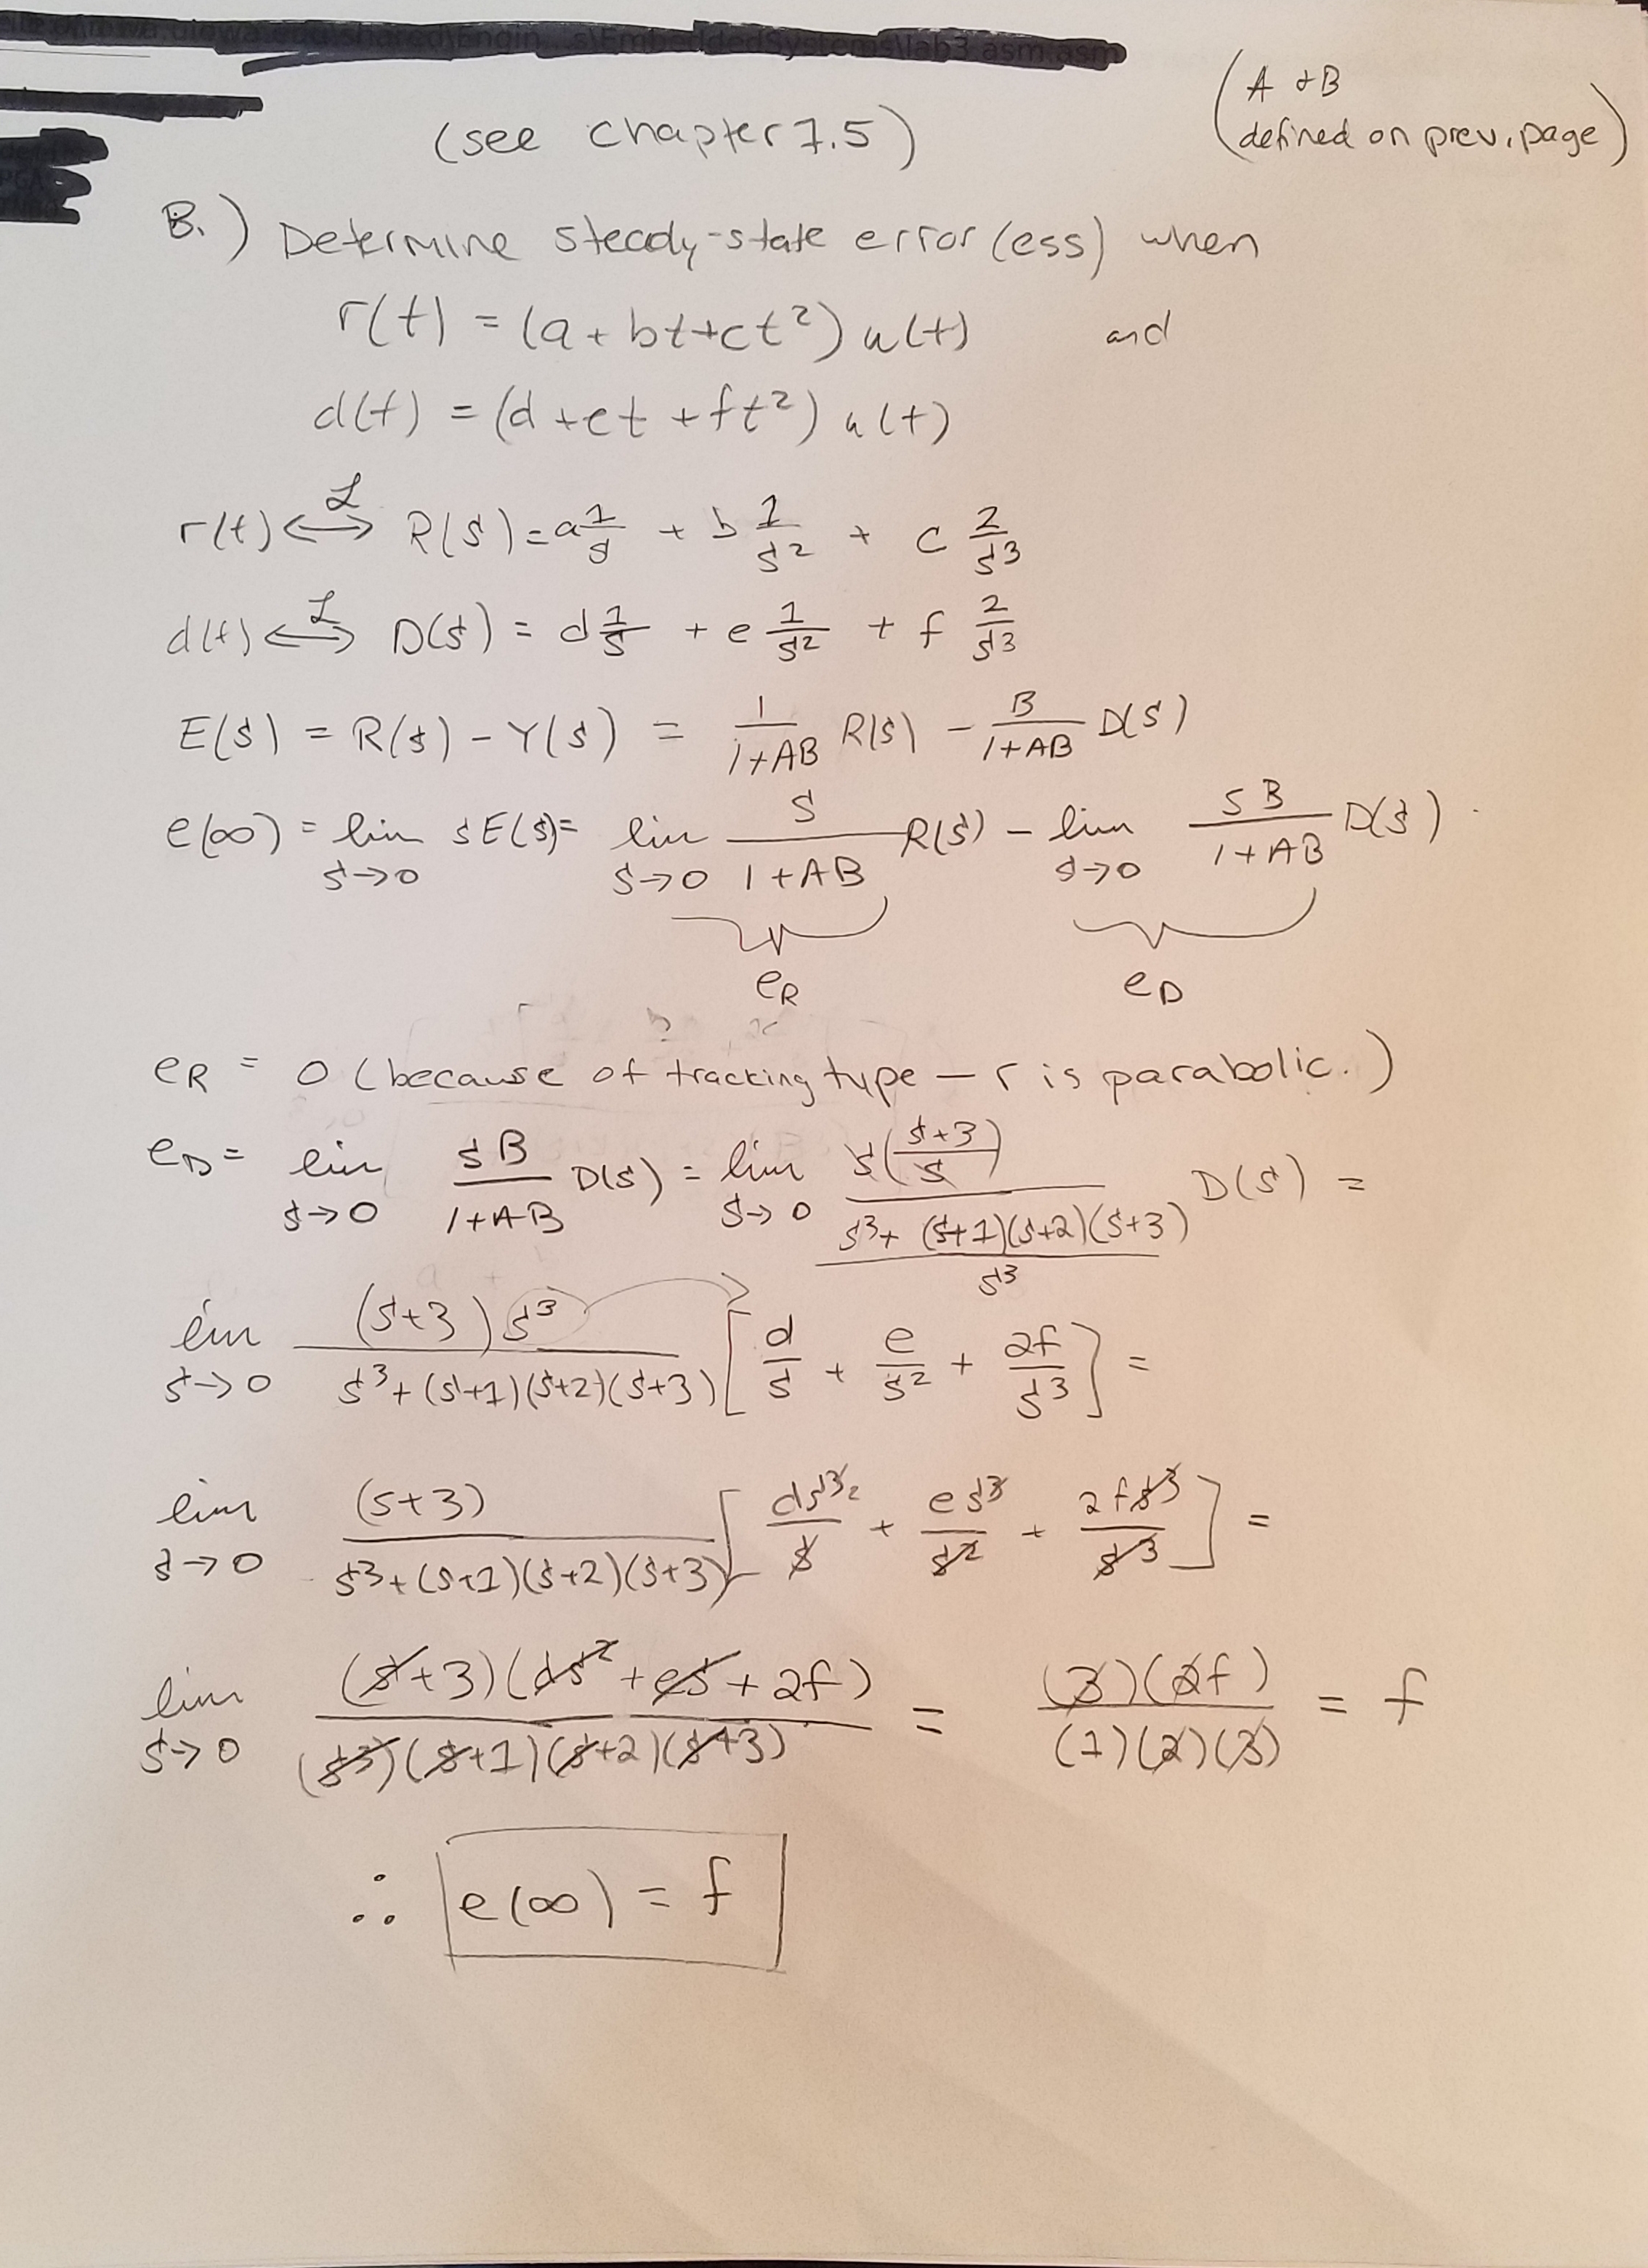 uiowa.edu\shared\Engin...s\EmbeddedSystems\lab3.asm.asm
(see chapter 7.5)
(A & B
defined on prev. page)
B.) Determine steady-state error (ess) when
r(t) = (a + bt + ct²) u(t) and
d(t) = (d + et + ft²) u(t)
r(t) ⟺ℒ R(s) = a 1/s + b 1/s² + c 2/s³
d(t) ⟺ℒ D(s) = d 1/s + e 1/s² + f 2/s³
E(s) = R(s) - Y(s) = 1/(1+AB) R(s) - B/(1+AB) D(s)
e(∞) = lim s→0 sE(s) = lim s→0 s/(1+AB) R(s) - lim s→0 sB/(1+AB) D(s)
eR eD
eR = 0 (because of tracking type — r is parabolic.)
eD = lim s→0 sB/(1+AB) D(s) = lim s→0 s((s+3)/s) / ((s³ + (s+1)(s+2)(s+3))/s³) D(s) =
lim s→0 (s+3)s³ / (s³ + (s+1)(s+2)(s+3)) [d/s + e/s² + 2f/s³] =
lim s→0 (s+3) / (s³ + (s+1)(s+2)(s+3)) [ds³/s + es³/s² + 2fs³/s³] =
lim s→0 (s+3)(ds² + es + 2f) / (s³)(s+1)(s+2)(s+3) = (3)(2f) / (1)(2)(3) = f
∴ e(∞) = f